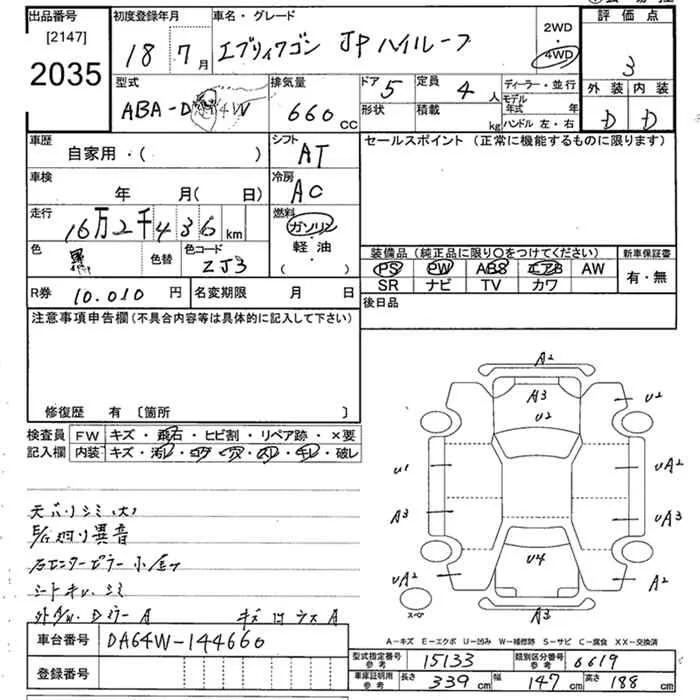 出品番号 初度登録年月 車名・グレード 評価点
[2147]
2035
18 7月 エブリィワゴン JPハイルーフ
2WD・4WD
3
型式 排気量 ドア 5 定員 4人 ディーラー・並行
モデル年式 年
外装 内装
ABA-D 4W 660cc 形状 積載 kg ハンドル 左・右
D D
車歴 シフト セールスポイント (正常に機能するものに限ります)
自家用・( ) AT
車検 冷房
年 月(日) AC
走行 16万2千436km 燃料
ガソリン
軽・油
( )
色 黒 色替 色コード ZJ3
装備品 (純正品に限り○をつけてください) 新車保証書
PS PW ABS エアB AW 有・無
SR ナビ TV カワ
R券 10.010円 名変期限 月 日 後日品
注意事項申告欄 (不具合内容等は具体的に記入して下さい)
修復歴 有 [箇所 ]
検査員 FW キズ・飛石・ヒビ割・リペア跡・×要
記入欄 内装 キズ・汚レ・コゲ・穴・スレ・キレ・破レ
天バリシミ(大)
異音
右センターピラー小
シミ
A
A2
A3 U2
U2
U1 UA2
A3 UA3
U4
UA2 A2
A3
スペア
A-キズ E-エクボ U-凹み W-補修跡 S-サビ C-腐食 XX-交換済
車台番号 DA64W-144660
登録番号
型式指定番号 参考 15133 類別区分番号 参考 6619
車庫証明用 参考 長さ 339cm 幅 147cm 高さ 188cm